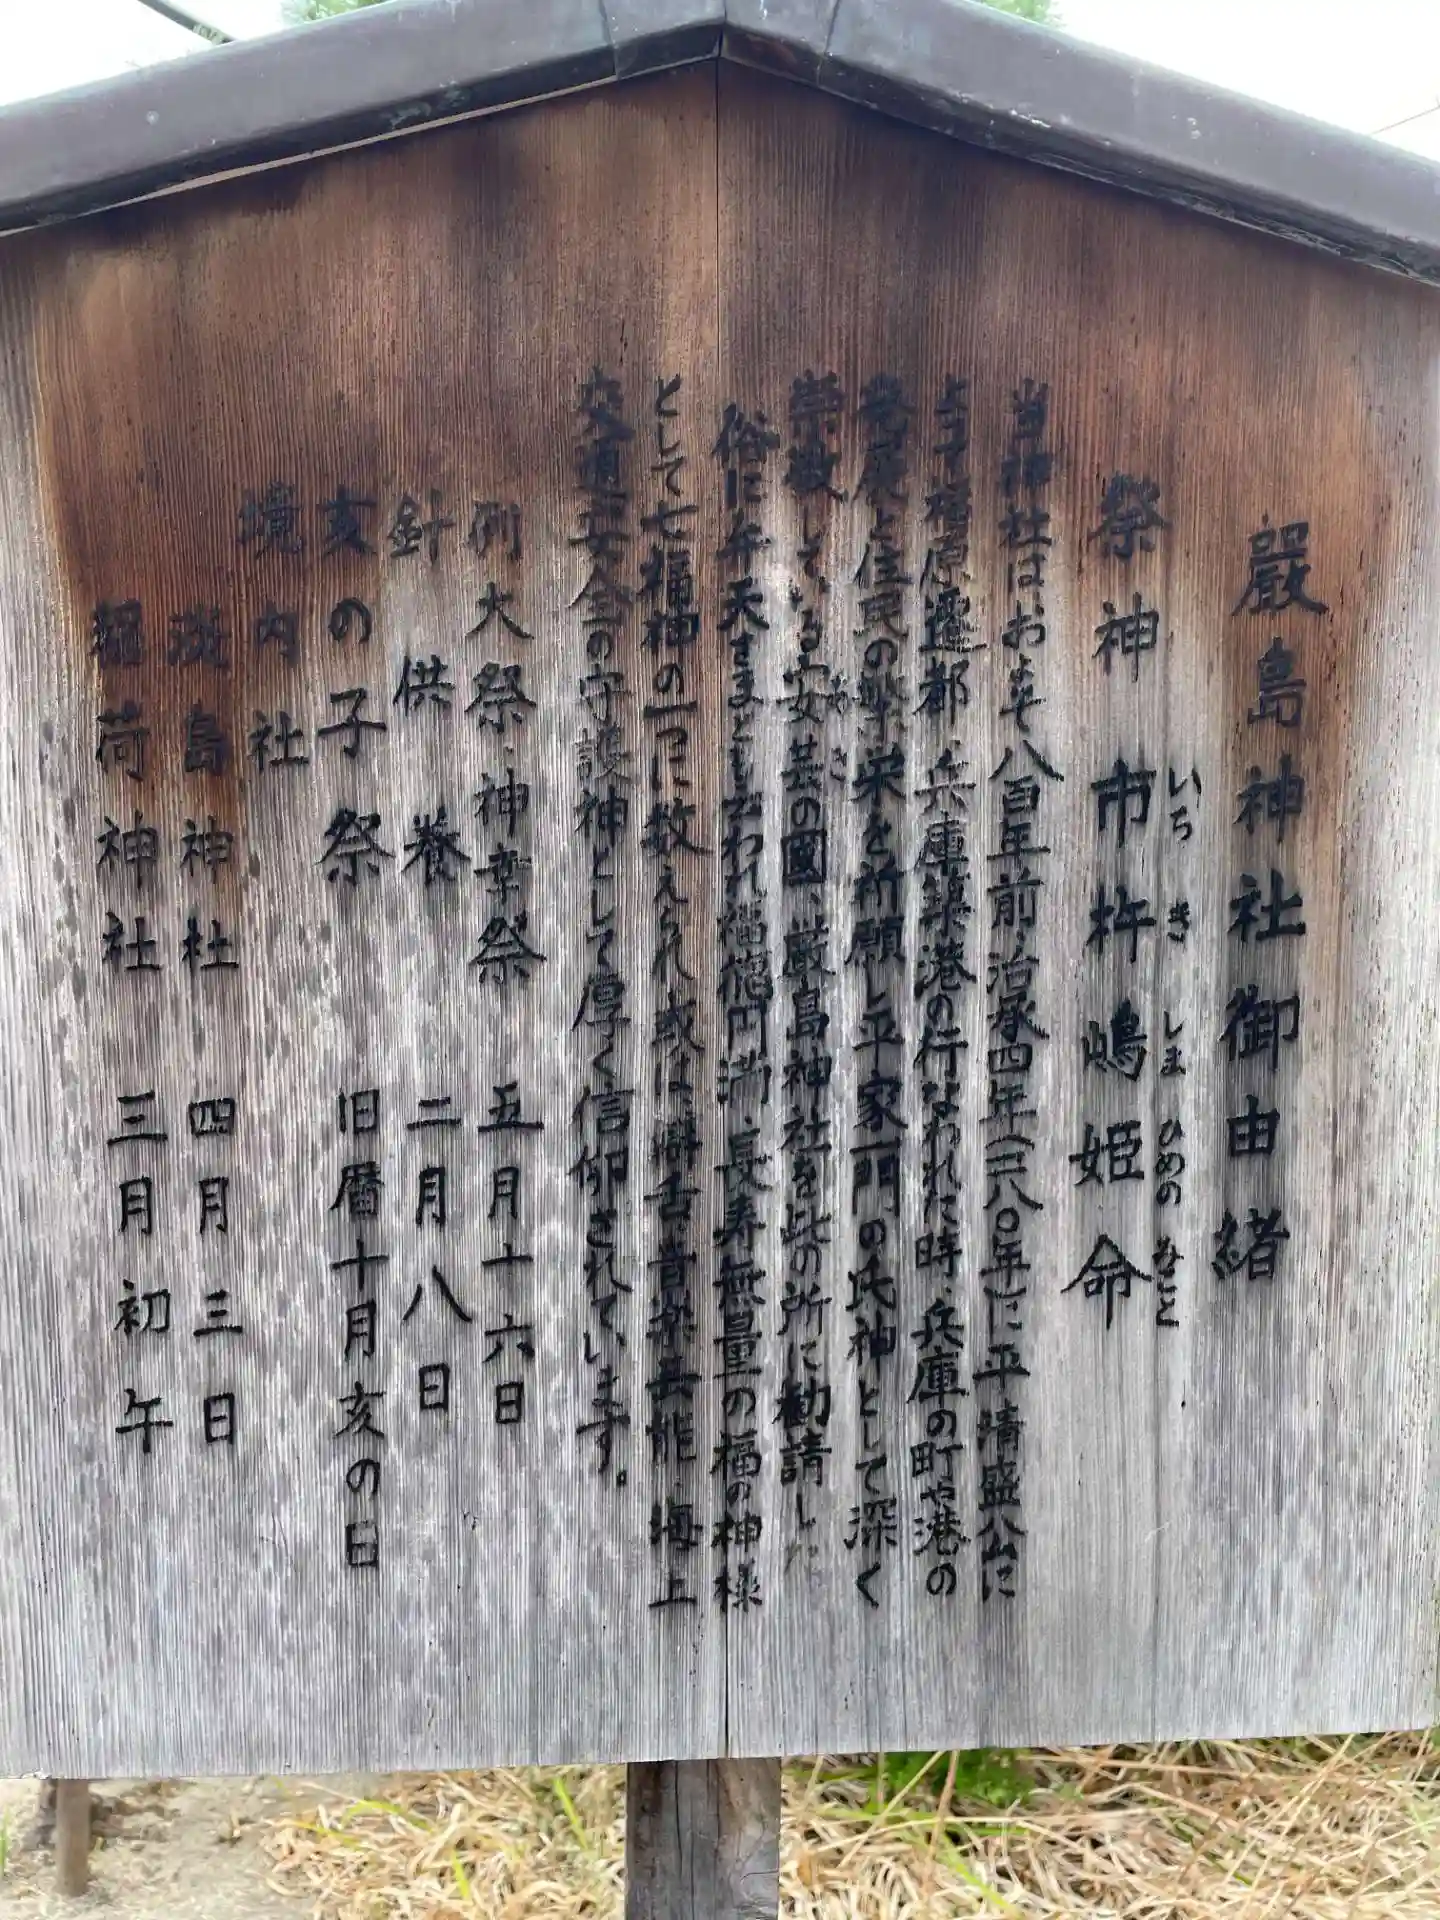 嚴島神社御由緒
祭神 市杵嶋姫命
いち き しま ひめの みこと
当神社はおよそ八百年前治承四年(一一八〇年)に平清盛公に
よる福原遷都、兵庫築港の行なわれた時、兵庫の町や港の
発展と住民の繁栄を祈願し平家一門の氏神として深く
崇敬している安芸の國、厳島神社を此の所に勧請した
俗に弁天さまともいわれ福徳円満、長寿無量の福の神様
として七福神の一つに数えられ或は辯舌、音楽芸能、海上
交通安全の守護神として厚く信仰されています。
例大祭・神幸祭 五月十六日
針供養 二月八日
亥の子祭 旧暦十月亥の日
境内社
淡島神社 四月三日
稲荷神社 三月初午